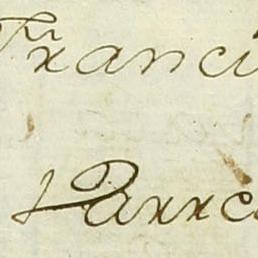 Franci
Parre